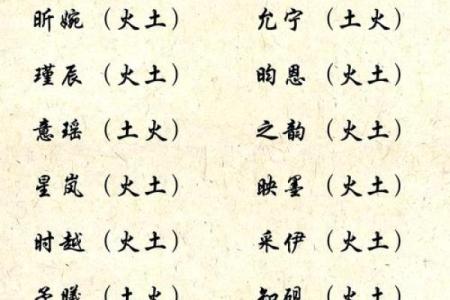 昕婉（火土） 允宁（土火）
瑾辰（火土） 昀恩（火土）
意瑶（土火） 之韵（火土）
星岚（火土） 映墨（火土）
时越（火土） 采伊（火土）
（土火） 知砚（火土）